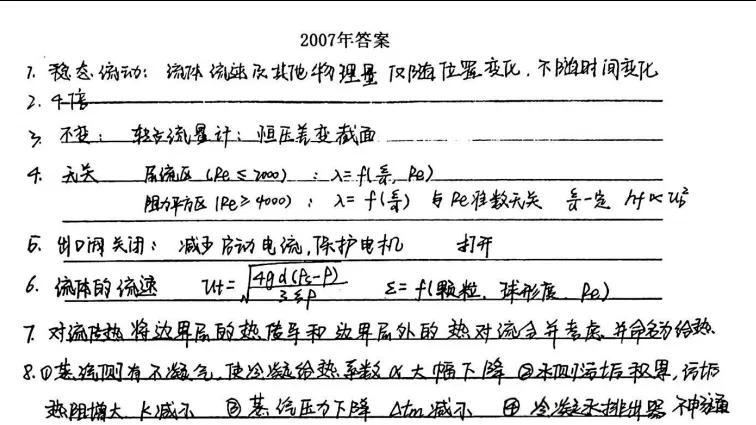 2007年答案
1. 稳态流动：流体流速及其他物理量仅随位置变化，不随时间变化
2. 4倍
3. 不变；转子流量计：恒压差变截面
4. 无关 层流区（Re≤2000）：λ=f(ε/d, Re)
阻力平方区（Re≥4000）：λ=f(ε/d) 与Re准数无关 ε/d一定 hf∝u²
5. 出口阀关闭：减少启动电流，保护电机 打开
6. 流体的流速 Ut=√(4gd(ρs-ρ)/3ξρ) ξ=f(颗粒，球形度，Re)
7. 对流传热将边界层的热传导和边界层外的热对流合并考虑，并命名为给热。
8. ①蒸汽侧有不凝气，使冷凝给热系数α大幅下降 ②水侧污垢积累，污垢
热阻增大，K减小 ③蒸汽压力下降 Δtm减小 ④冷凝水排出器不畅通